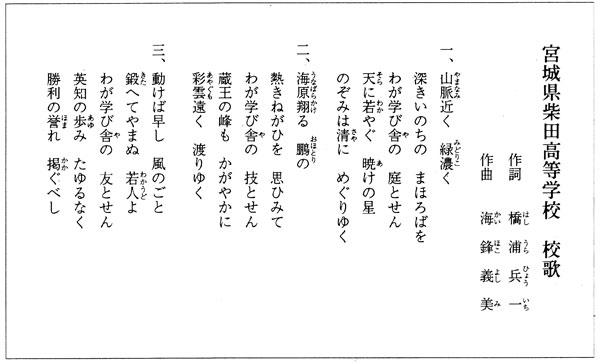 宮城県柴田高等学校　校歌
作詞　橋浦兵一
作曲　海鋒義美
一、山脈近く　緑濃く
深きいのちの　まほろばを
わが学び舎の　庭とせん
天に若やぐ　暁けの星
のぞみは清に　めぐりゆく
二、海原翔る　鵬の
熱きねがひを　思ひみて
わが学び舎の　技とせん
蔵王の峰も　かがやかに
彩雲遠く　渡りゆく
三、動けば早し　風のごと
鍛へてやまぬ　若人よ
わが学び舎の　友とせん
英知の歩み　たゆるなく
勝利の誉れ　掲ぐべし